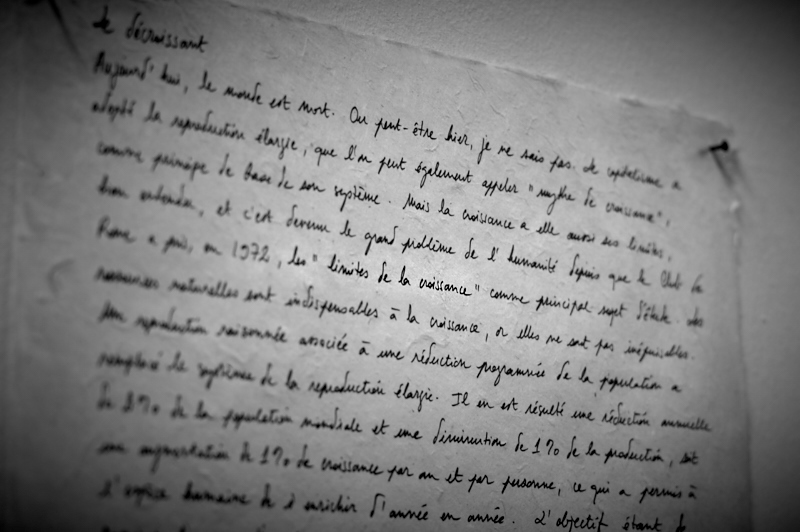 Le décroissant
Aujourd'hui, le monde est mort. Ou peut-être hier, je ne sais pas. Le capitalisme a
adopté la reproduction élargie, que l'on peut également appeler "mythe de croissance",
comme principe de base de son système. Mais la croissance a elle aussi ses limites,
bien entendu, et c'est devenu le grand problème de l'humanité depuis que le Club de
Rome a pris, en 1972, les "limites de la croissance" comme principal sujet d'étude. Les
ressources naturelles sont indispensables à la croissance, or elles ne sont pas inépuisables.
Une reproduction raisonnée associée à une réduction programmée de la population a
remplacé le système de la reproduction élargie. Il en est résulté une réduction annuelle
de 2% de la population mondiale et une diminution de 1% de la production, soit
une augmentation de 1% de croissance par an et par personne, ce qui a permis à
l'espèce humaine de s'enrichir d'année en année. L'objectif étant de